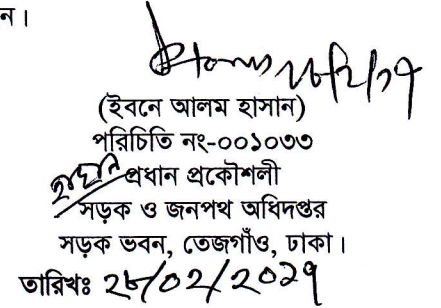 ন।
২৮/২/১৭
(ইবনে আলম হাসান)
পরিচিতি নং-০০১০৩৩
প্রধান প্রকৌশলী
সড়ক ও জনপথ অধিদপ্তর
সড়ক ভবন, তেজগাঁও, ঢাকা।
তারিখঃ ২৮/০২/২০১৭